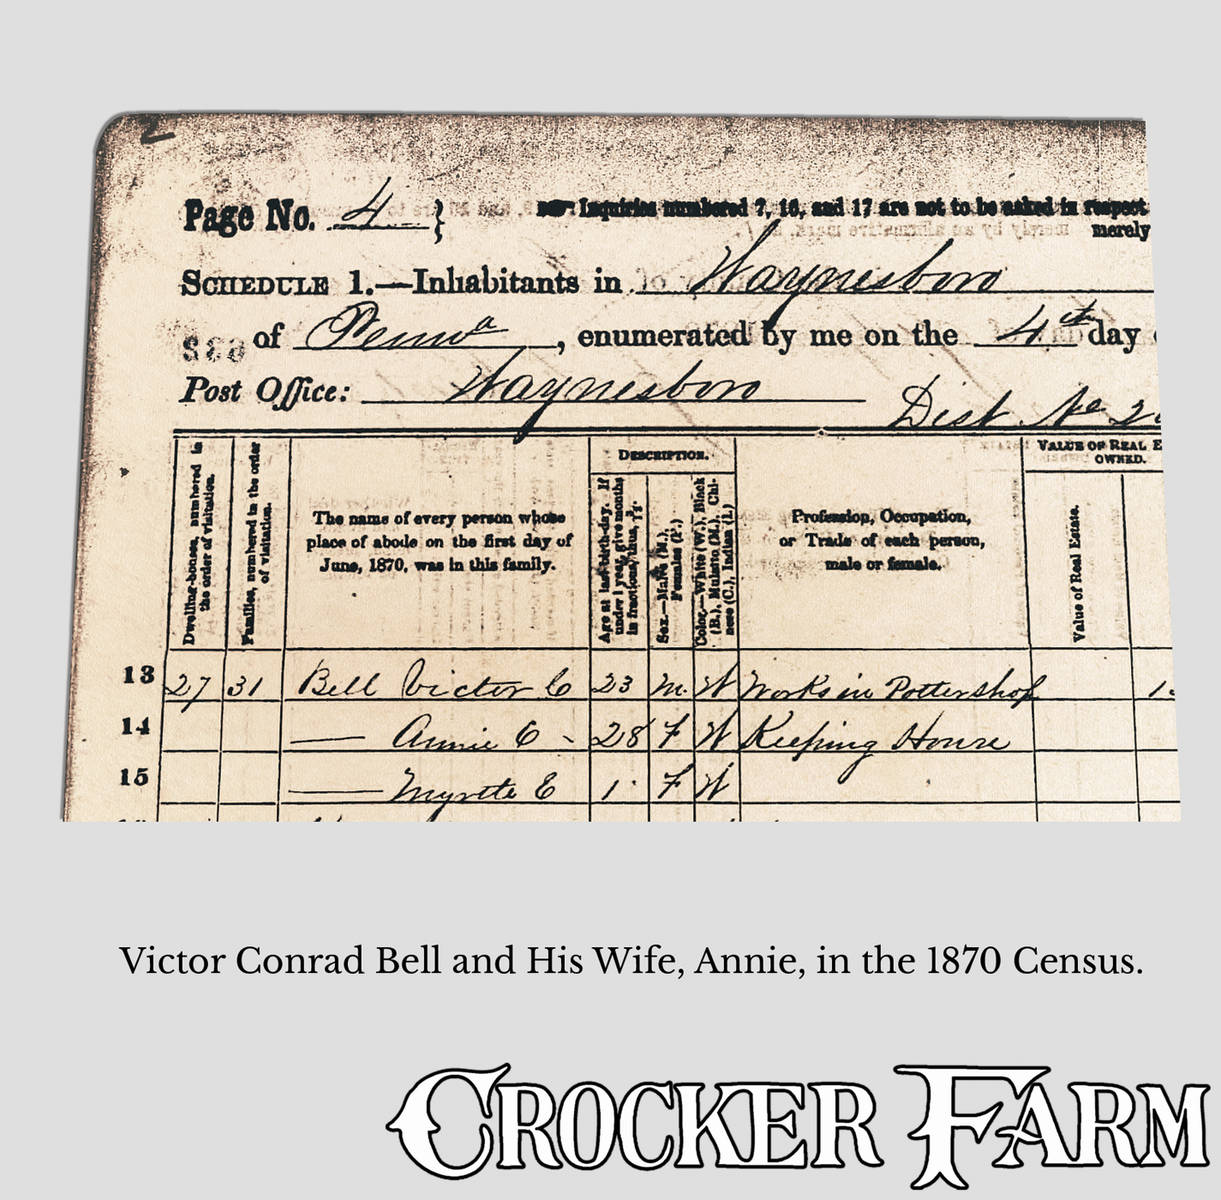 2
Page No. 4 }
Inquiries numbered 7, 16, and 17 are not to be asked in respect
merely
Schedule 1.—Inhabitants in Waynesboro
of Penna, enumerated by me on the 4th day
Post Office: Waynesboro
Dist No 2
Dwelling-houses, numbered in the order of visitation.
Families, numbered in the order of visitation.
The name of every person whose
place of abode on the first day of
June, 1870, was in this family.
Description.
Age at last birth-day. If under 1 year, give months in fractions, thus, 3/12.
Sex.—Males (M.), Females (F.)
Color.—White (W.), Black (B.), Mulatto (M.), Chinese (C.), Indian (I.)
Profession, Occupation,
or Trade of each person,
male or female.
Value of Real E
owned.
Value of Real Estate.
13 27 31 Bell Victor C 23 M. W Works in Pottershop 1
14 — Annie C - 28 F W Keeping House
15 — Myrtte E 1 F W
Victor Conrad Bell and His Wife, Annie, in the 1870 Census.
CROCKER FARM